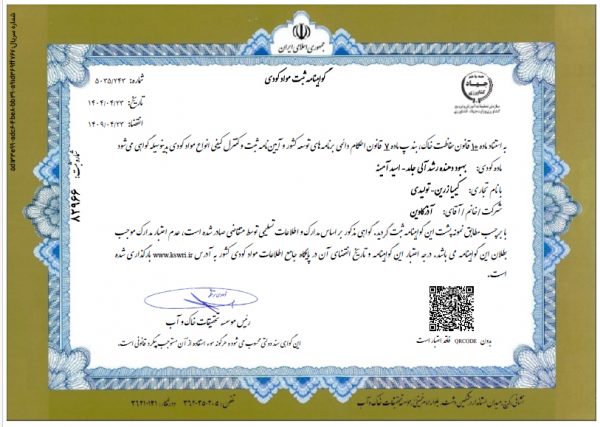 جمهوری اسلامی ایران
گواهینامه ثبت مواد کودی
شماره: ۵۰۳۵/۲۴۳
تاریخ: ۱۴۰۴/۰۴/۲۳
انقضاء: ۱۴۰۹/۰۴/۲۳
جهاد
کشاورزی
به استناد ماده ۱۰ قانون حفاظت خاک، بند پ ماده ۷ قانون احکام دائمی برنامه‌های توسعه کشور و آیین‌نامه ثبت و کنترل کیفی انواع مواد کودی بدینوسیله گواهی می‌شود
ماده کودی: بهبود دهنده رشد آلی جامد - اسید آمینه
با نام تجاری: کیمیا زرین - تولیدی
شرکت / خانم / آقای: آذرکاوین
با برچسب مطابق نمونه پشت این گواهینامه ثبت گردید. گواهی مذکور بر اساس مدارک و اطلاعات تسلیمی توسط متقاضی صادر شده است، عدم اعتبار مدارک موجب
بطلان این گواهینامه می باشد. درجه اعتبار این گواهینامه و تاریخ انقضای آن در پایگاه جامع اطلاعات مواد کودی کشور به آدرس www.kswri.ir بارگذاری شده
است.
شماره ثبت: ۸۲۹۶۶
رئیس موسسه تحقیقات خاک و آب
بدون QRCODE فاقد اعتبار است
این گواهی سند دولتی محسوب می شود و هرگونه سوء استفاده از آن مستوجب پیگرد قانونی است.
شماره سریال: